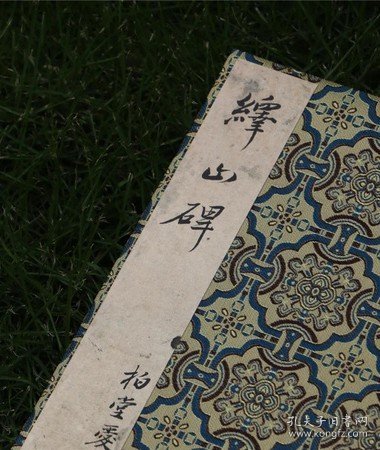 繹山碑
柏堂爱
孔夫子旧书网
www.kongfz.com